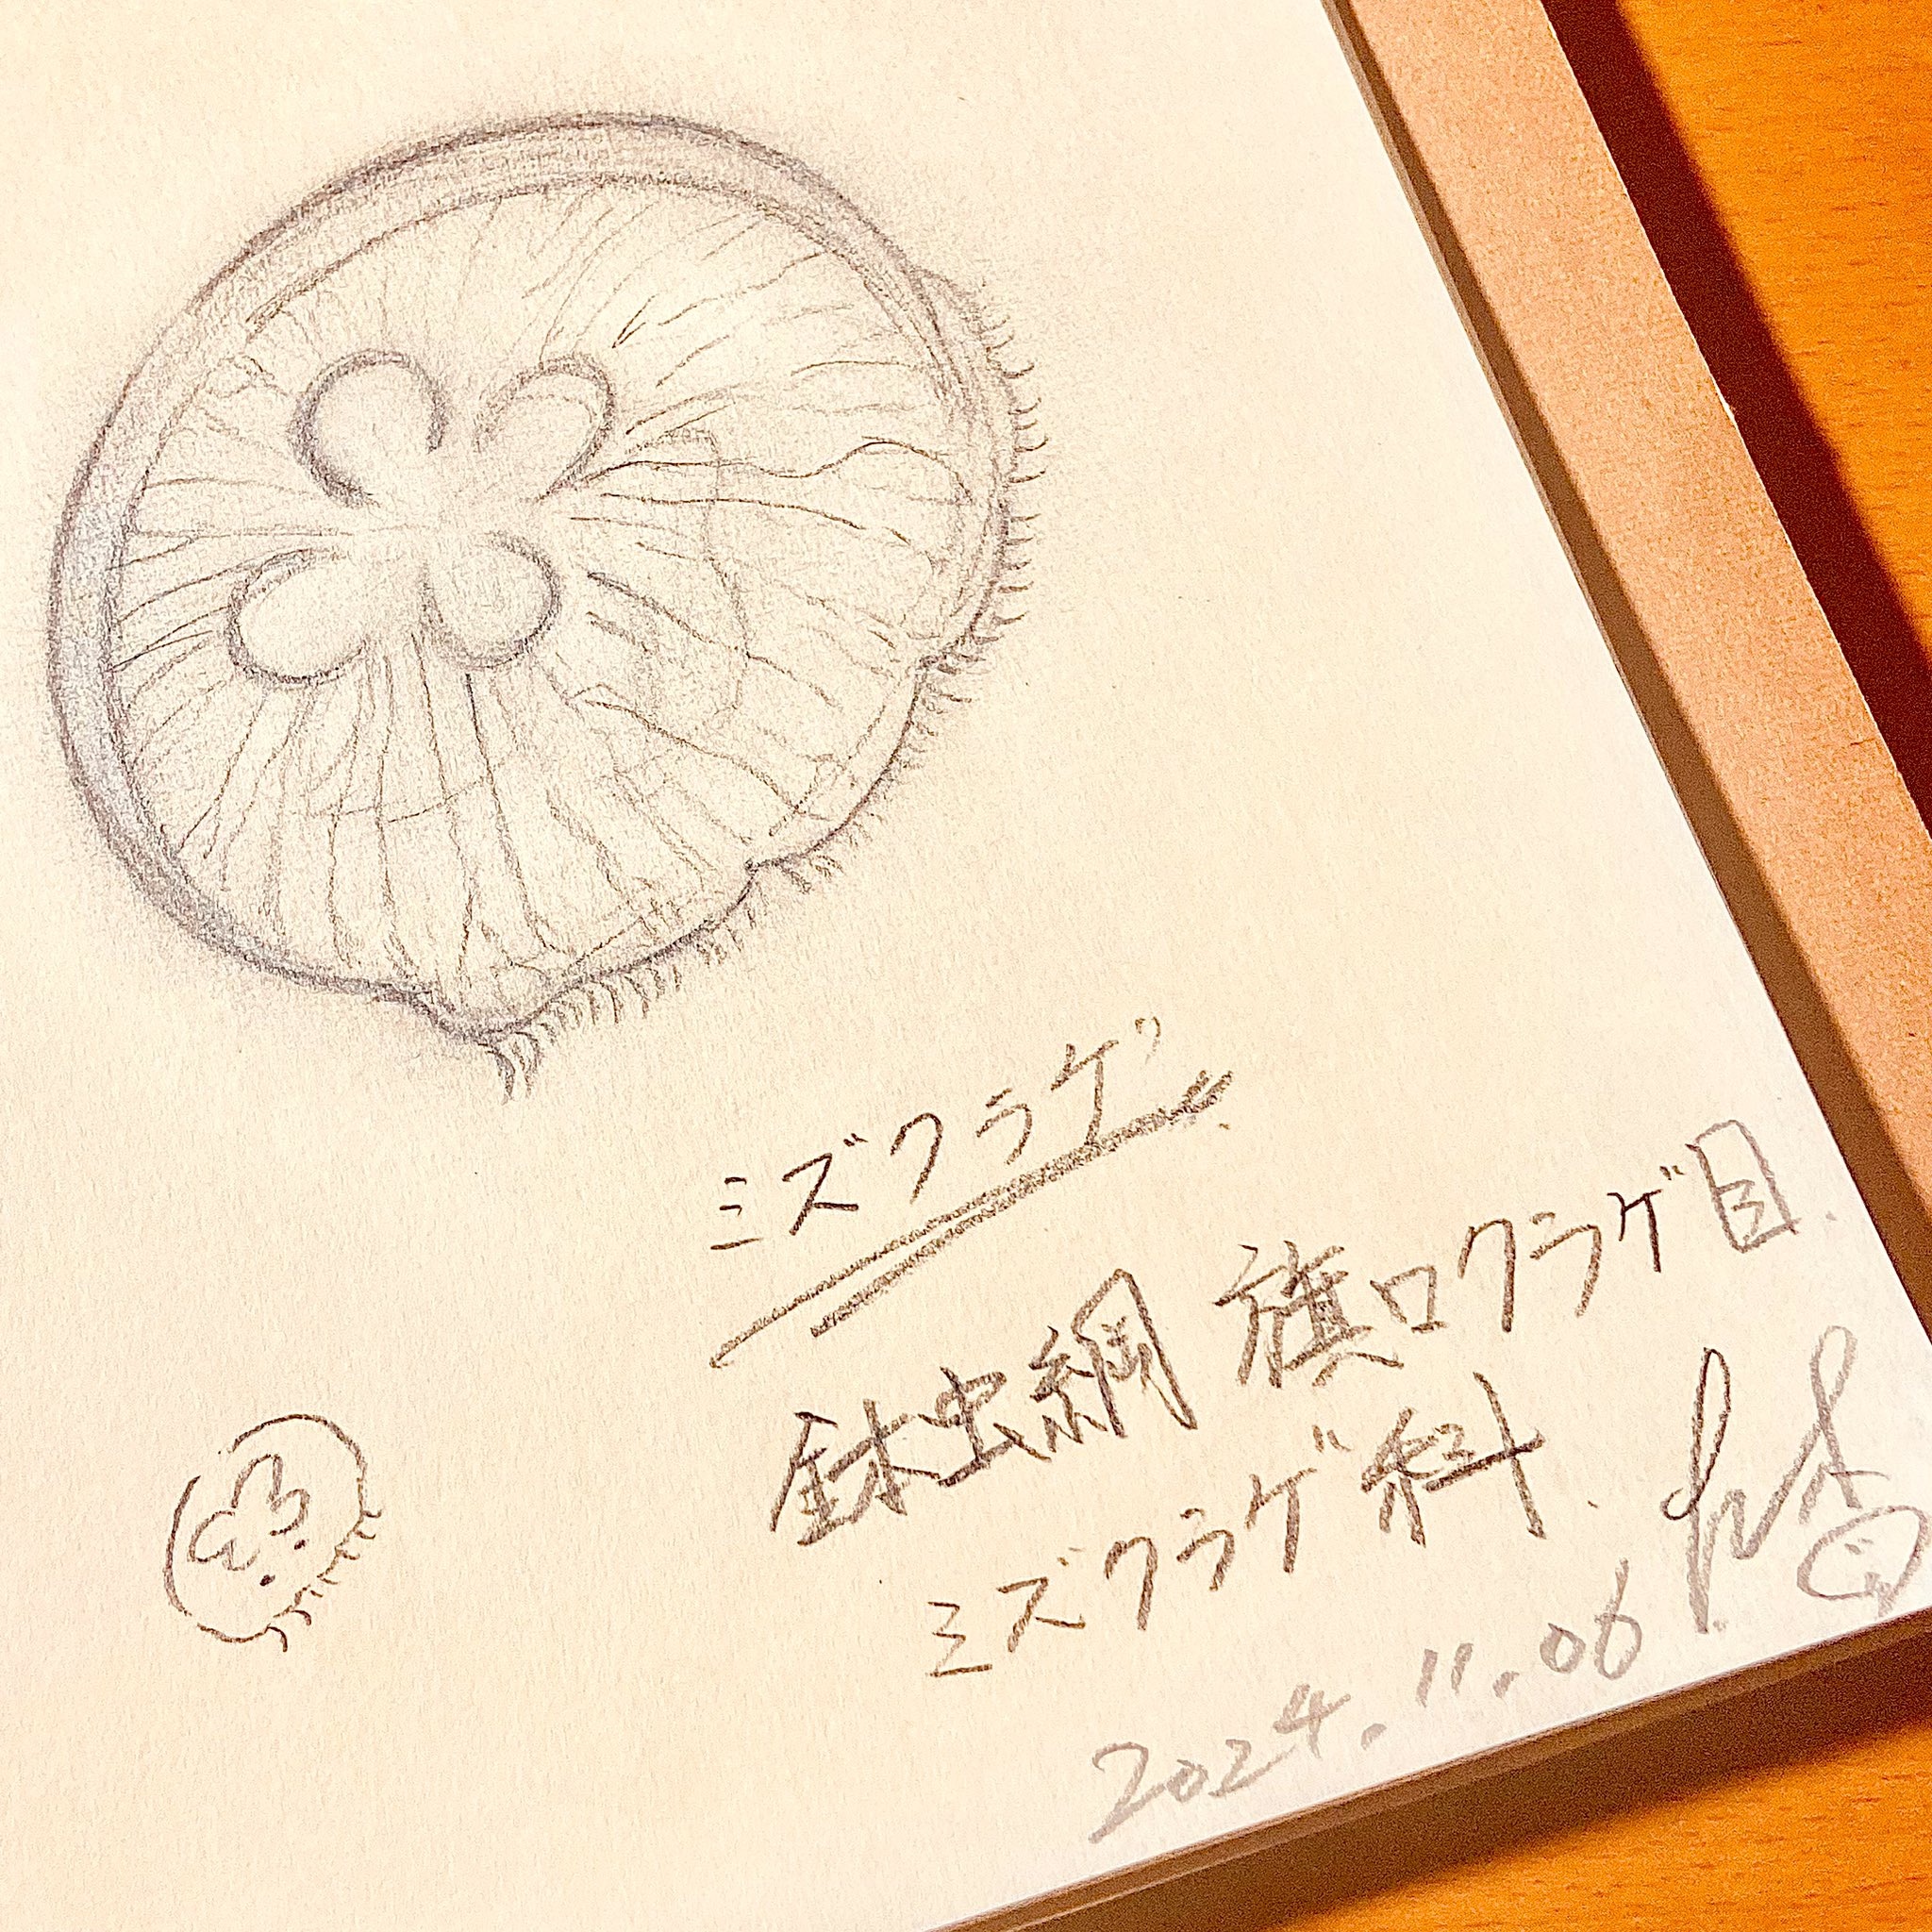 ミズクラゲ
鉢虫綱 旗口クラゲ目
ミズクラゲ科
2024.11.06